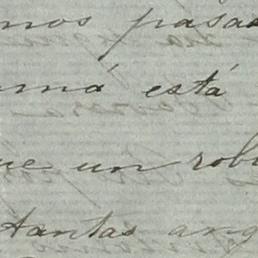 mos pasa
má está
ue un rob
tantas ang